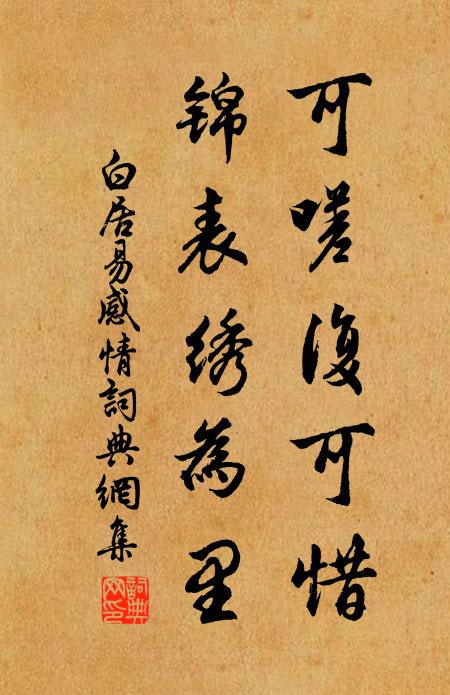 可嗟復可惜
锦表绣為里
白居易感情詞典網集
詞典网印